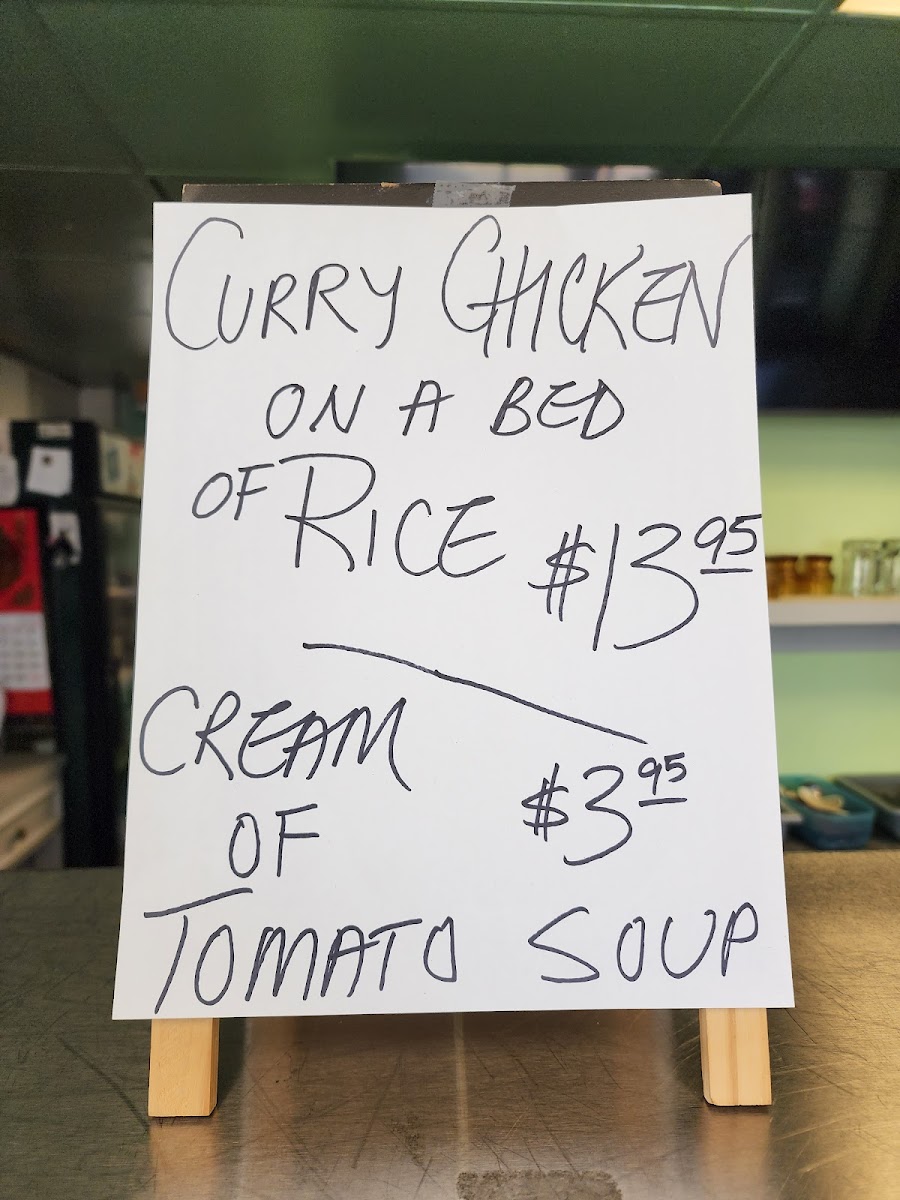 CURRY CHICKEN
ON A BED
OF RICE $13.95
CREAM
OF $3.95
TOMATO SOUP